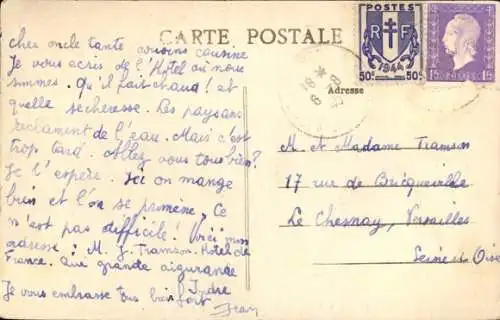 CARTE POSTALE
POSTES
RF
1944
50c 50c
18 * 8
Adresse
cher oncle tante cousins cousine
Je vous écris de l'Hôtel où nous
sommes. Qu'il fait chaud ! et
quelle sécheresse. Les paysans
réclament de l'eau. Mais c'est
trop tard. Allez vous tous bien ?
Je l'espère. Ici on mange
bien et l'on se promène. Ce
n'est pas difficile ! Voici mon
adresse : M. J. Tramson. Hôtel de
France. Aigurande
Indre
Je vous embrasse tous bien fort
Jean
M. et Madame Tramson
17 rue de Bricqueville
Le Chesnay, Versailles
Seine et Oise